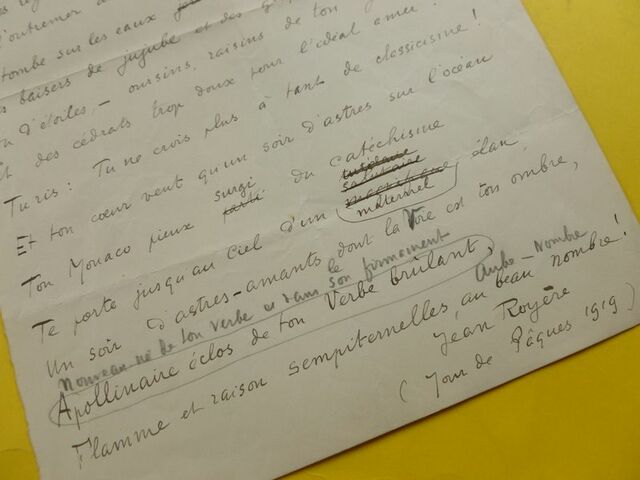 l'outremer
tombe sur les eaux
baisers de jujube et des
d'étoiles, — oursins, raisins de ton
Et des cédrats trop doux pour l'idéal amer!
Tu ris: Tu ne crois plus à tant de classicisme!
Et ton cœur veut qu'un soir d'astres sur l'océan
Ton Monaco pieux surgi du catéchisme
insulaire
salutaire
Te porte jusqu'au ciel d'un maternel élan,
Un soir d'astres-amants dont la Vie est ton ombre,
Nouveau né de ton verbe et dans le firmament
son
Apollinaire éclos de ton Verbe brûlant,
Aube-Nombre
Flamme et raison sempiternelles, au beau nombre!
Jean Royère
(Jour de Pâques 1919)